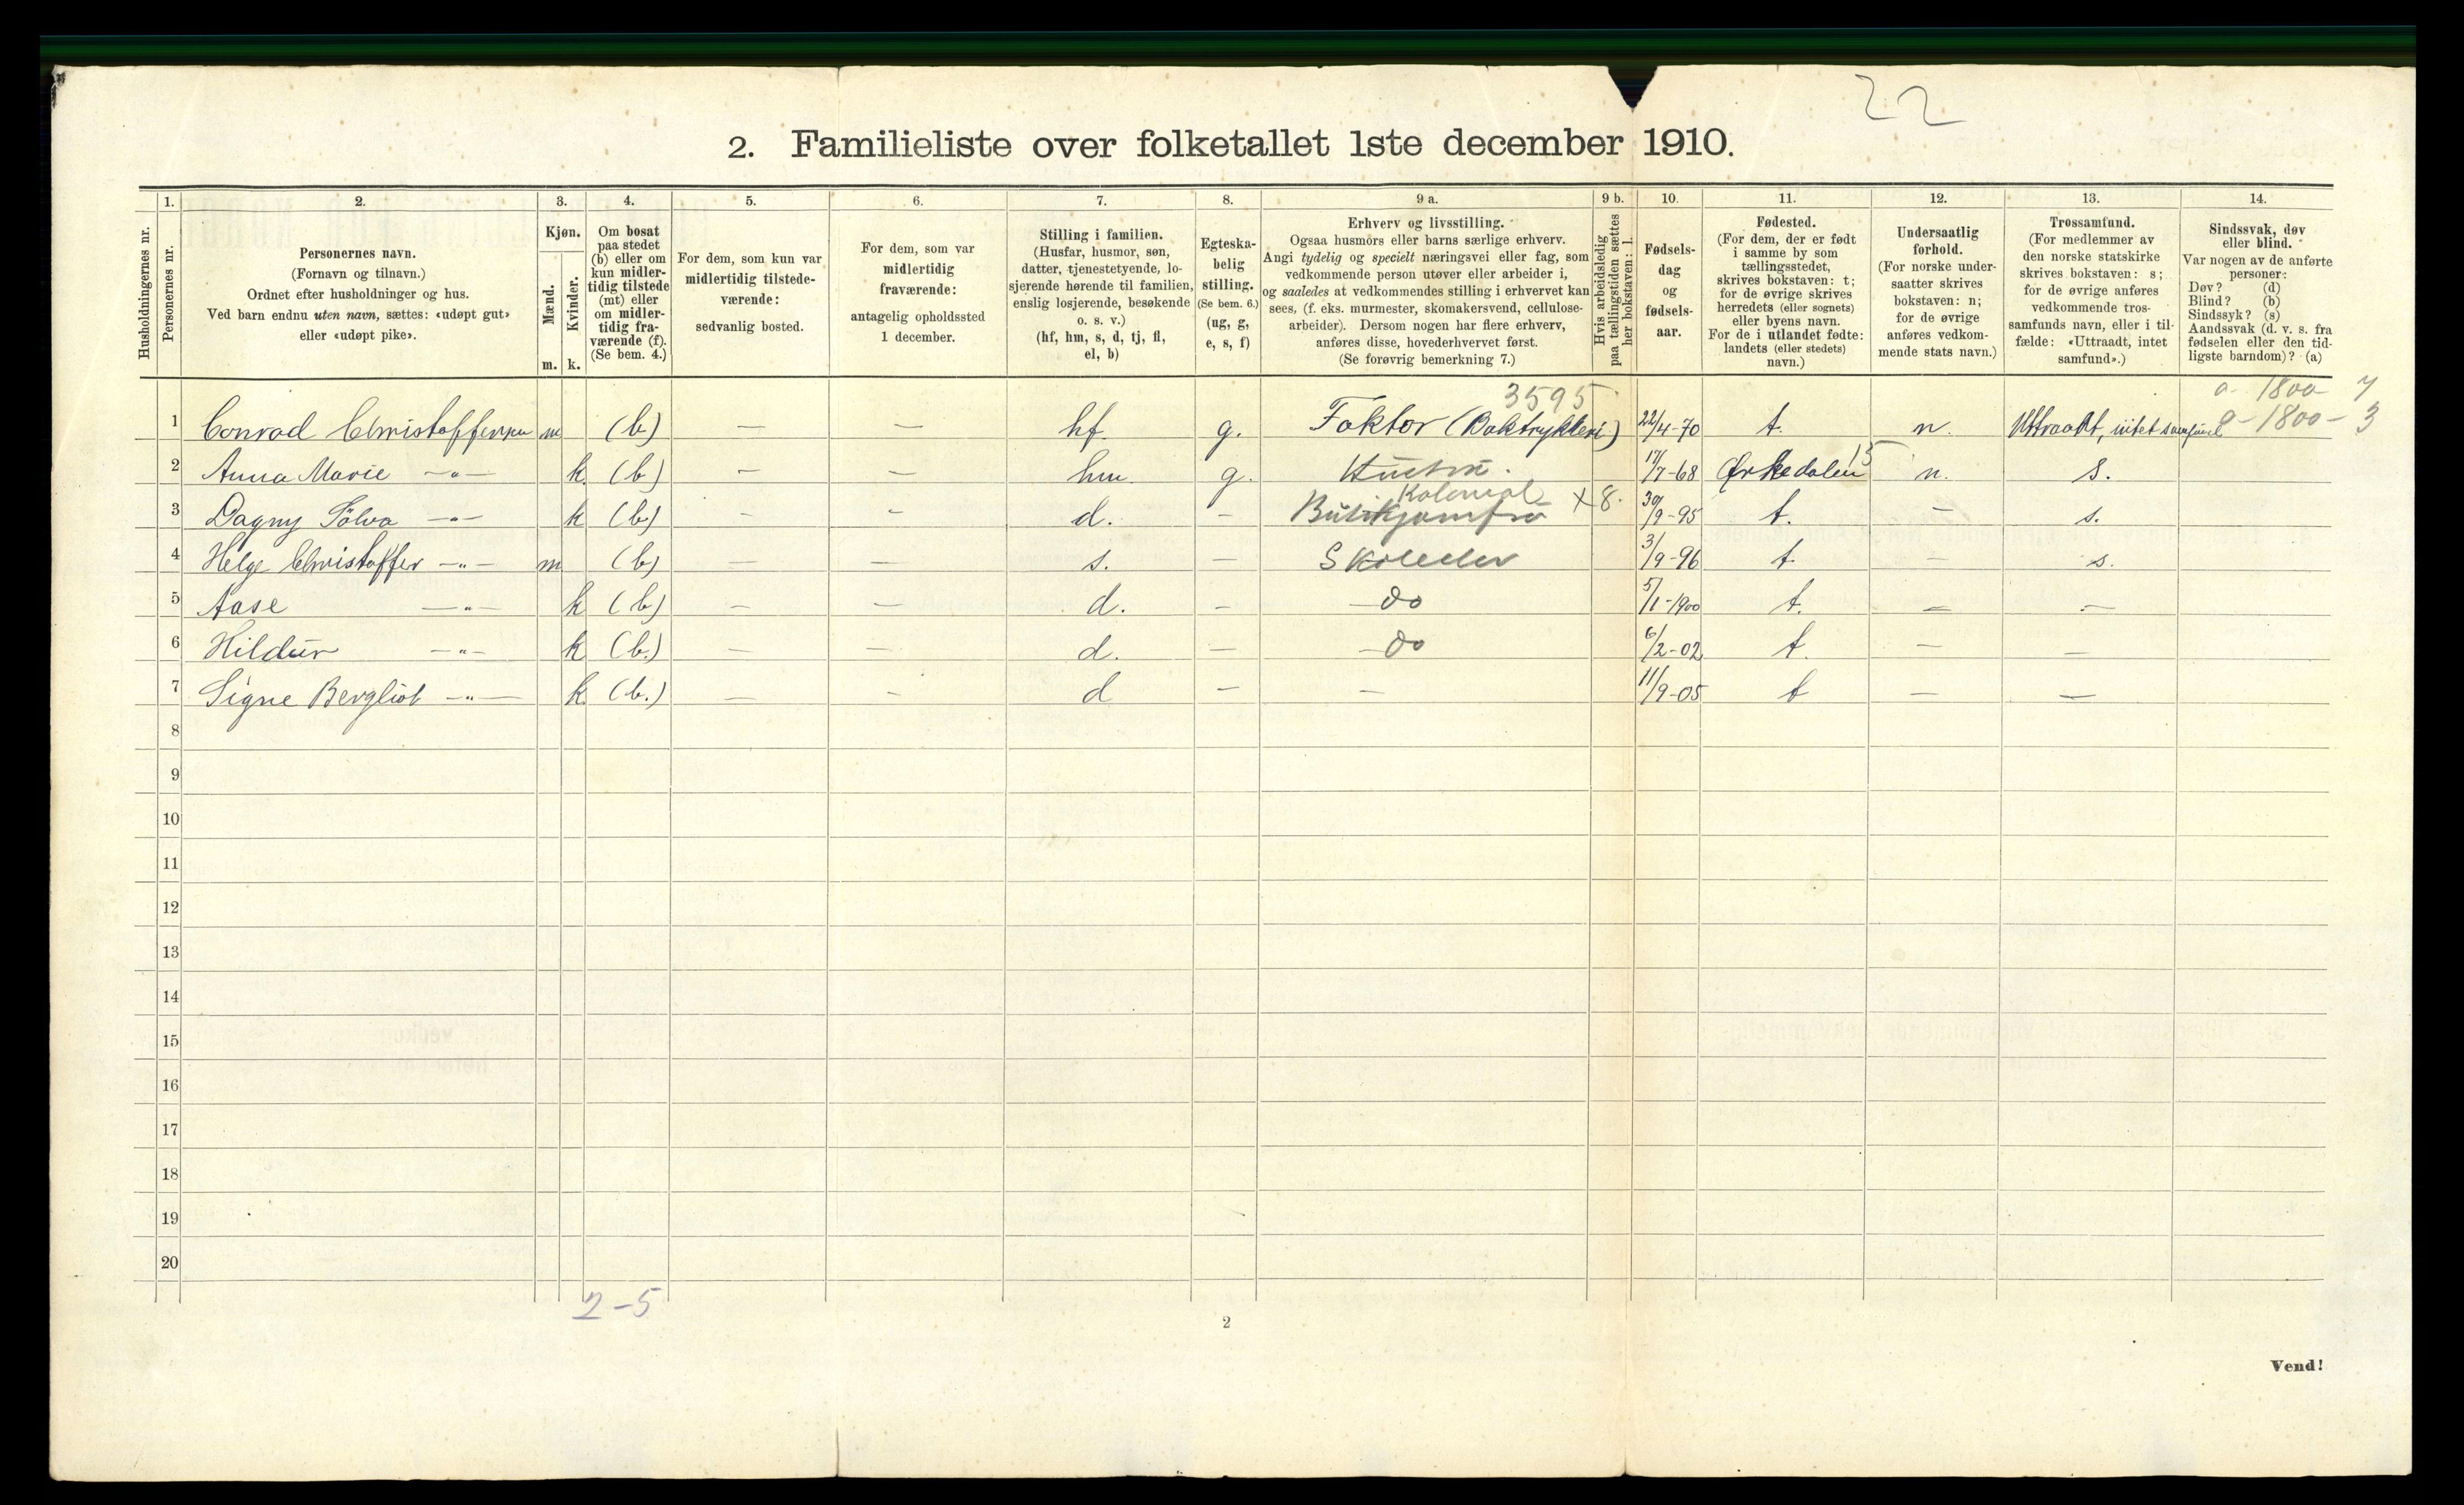 22
2. Familieliste over folketallet 1ste december 1910.
Husholdningernes nr.
1. Personernes nr.
2. Personernes navn. (Fornavn og tilnavn.) Ordnet efter husholdninger og hus. Ved barn endnu uten navn, sættes: «udøpt gut» eller «udøpt pike».
3. Kjøn. Mænd. m. Kvinder. k.
4. Om bosat paa stedet (b) eller om kun midlertidig tilstede (mt) eller om midlertidig fraværende (f). (Se bem. 4.)
5. For dem, som kun var midlertidig tilstedeværende: sedvanlig bosted.
6. For dem, som var midlertidig fraværende: antagelig opholdssted 1 december.
7. Stilling i familien. (Husfar, husmor, søn, datter, tjenestetyende, losjerende hørende til familien, enslig losjerende, besøkende o. s. v.) (hf, hm, s, d, tj, fl, el, b)
8. Egteskabelig stilling. (Se bem. 6.) (ug, g, e, s, f)
9 a. Erhverv og livsstilling. Ogsaa husmors eller barns særlige erhverv. Angi tydelig og specielt næringsvei eller fag, som vedkommende person utøver eller arbeider i, og saaledes at vedkommendes stilling i erhvervet kan sees, (f. eks. murmester, skomakersvend, cellulosearbeider). Dersom nogen har flere erhverv, anføres disse, hovederhvervet først. (Se forøvrig bemerkning 7.)
9 b. Hvis arbeidsledig paa tællingstiden sættes her bokstaven: l.
10. Fødselsdag og fødselsaar.
11. Fødested. (For dem, der er født i samme by som tællingsstedet, skrives bokstaven: t; for de øvrige skrives herredets (eller sognets) eller byens navn. For de i utlandet fødte: landets (eller stedets) navn.)
12. Undersaatlig forhold. (For norske undersaatter skrives bokstaven: n; for de øvrige anføres vedkommende stats navn.)
13. Trossamfund. (For medlemmer av den norske statskirke skrives bokstaven: s; for de øvrige anføres vedkommende trossamfunds navn, eller i tilfælde: «Uttraadt, intet samfund».)
14. Sindssvak, døv eller blind. Var nogen av de anførte personer: Døv? (d) Blind? (b) Sindssyk? (s) Aandssvak (d. v. s. fra fødselen eller den tidligste barndom)? (a)
3595 0-1800-7
1 Conrad Christoffersen m (b) — — hf. g. Faktor (Boktrykkeri) 22/4-70 t. n. Uttraadt, intet samfund 0-1800-3
2 Anna Marie —"— k. (b) — — hm. g. Hustru. 17/7-68 Ørkedalen 15 n. s.
Kolonial
3 Dagny Sölva —"— k (b) — — d. — Butikjomfru X8. 30/9-95 t. — s.
4 Helge Christoffer —"— m (b) — — s. — Skoleelev 3/9-96 t. — s.
5 Aase —"— k (b) — — d. — do 5/1-1900 t. — —
6 Hildur —"— k (b.) — — d. — do 6/2-02 t. — —
7 Signe Bergliot —"— k. (b.) — — d — — 11/9-05 t — —
8
9
10
11
12
13
14
15
16
17
18
19
20
2-5
2
Vend!